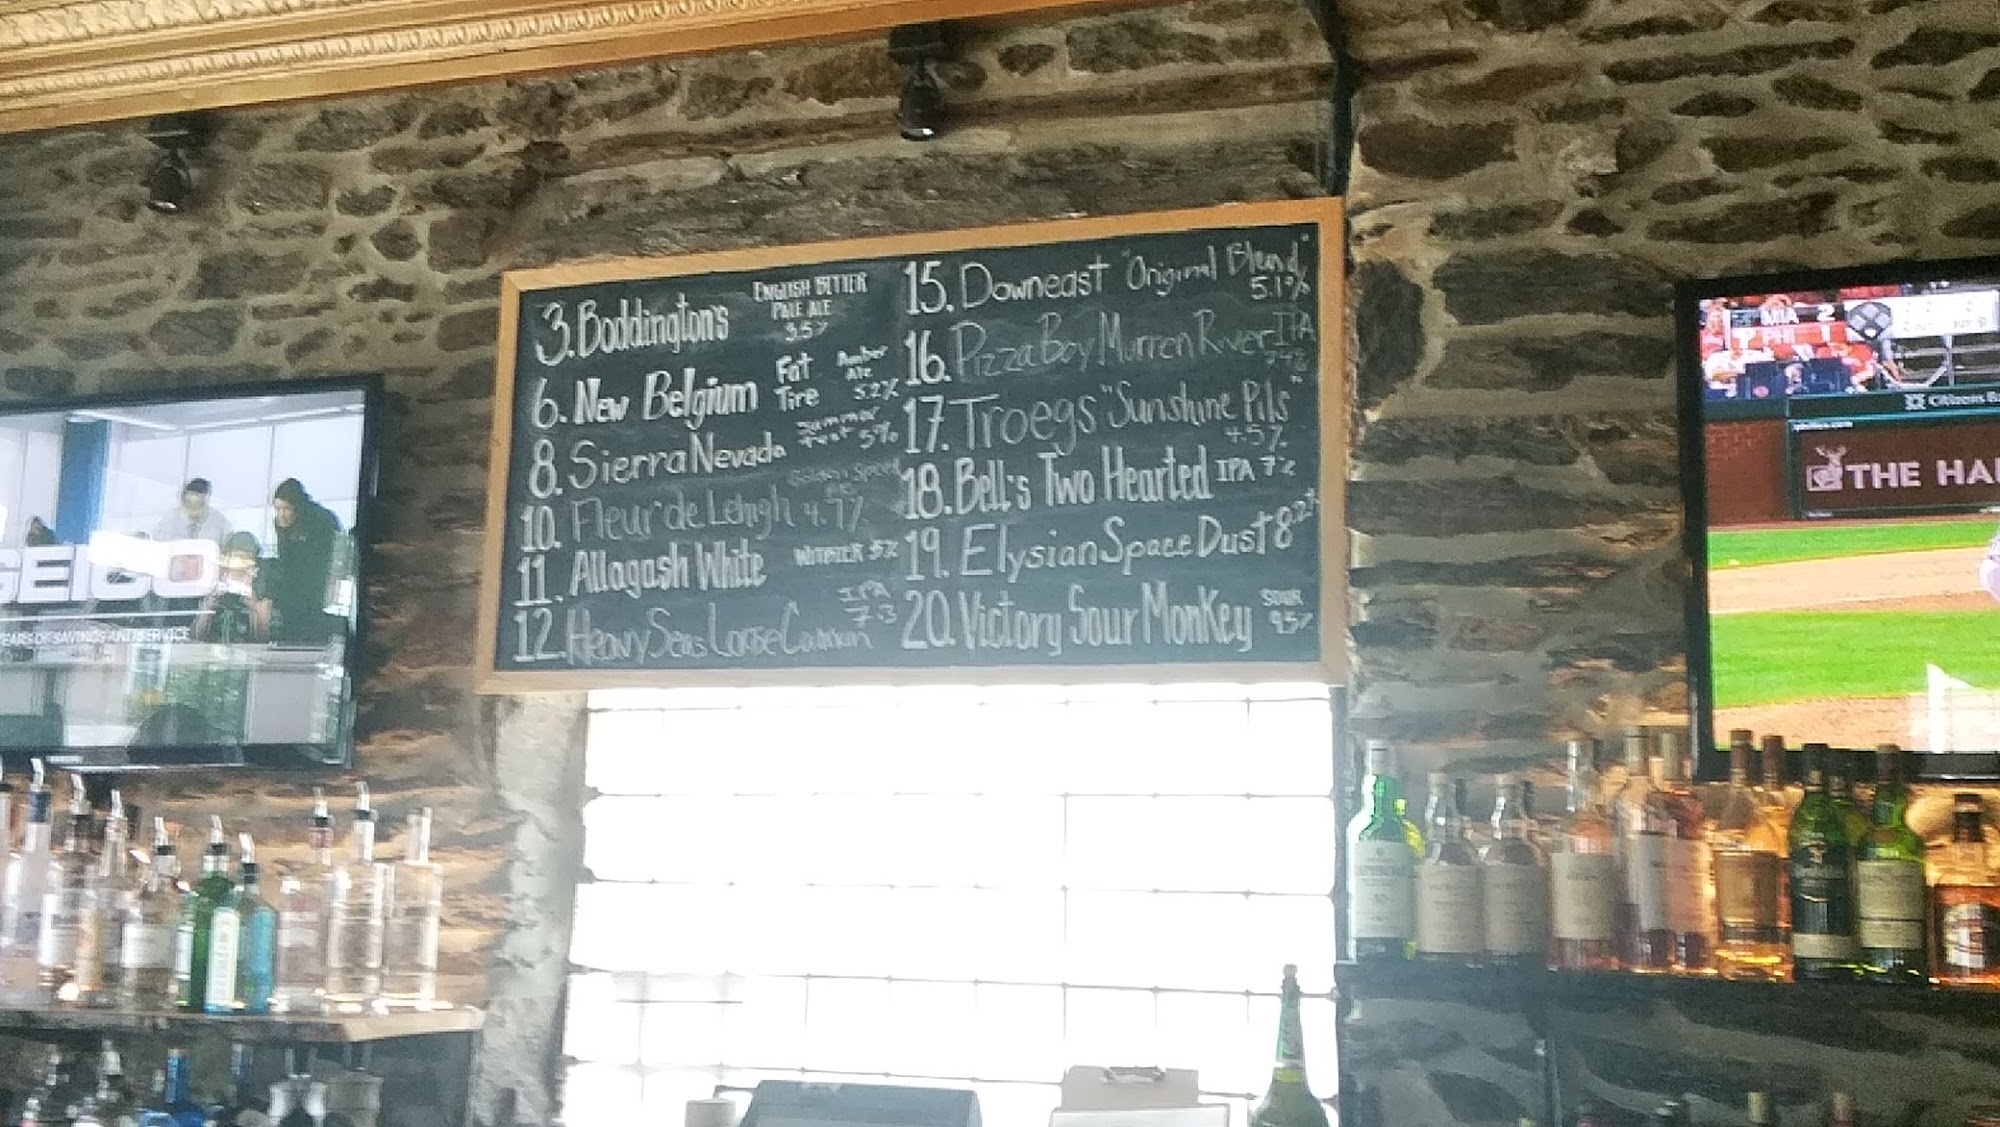 3. Boddington's ENGLISH BITTER
PALE ALE
3.5%
6. New Belgium Fat Tire Amber Ale 5.2%
8. Sierra Nevada Summer Fest 5%
10. Fleur de Lehigh 4.7%
11. Allagash White WITBIER 5%
12. Heavy Seas Loose Cannon IPA 7.3
15. Downeast "Original Blend"
5.1%
16. Pizza Boy Murren River IPA
17. Troegs "Sunshine Pils"
4.5%
18. Bell's Two Hearted IPA 7%
19. Elysian Space Dust 8.2%
20. Victory Sour Monkey SOUR
9.5%
GEICO
YEARS OF SAVINGS AND SERVICE
MIA 2
PHI 1
Citizens Ba
THE HA